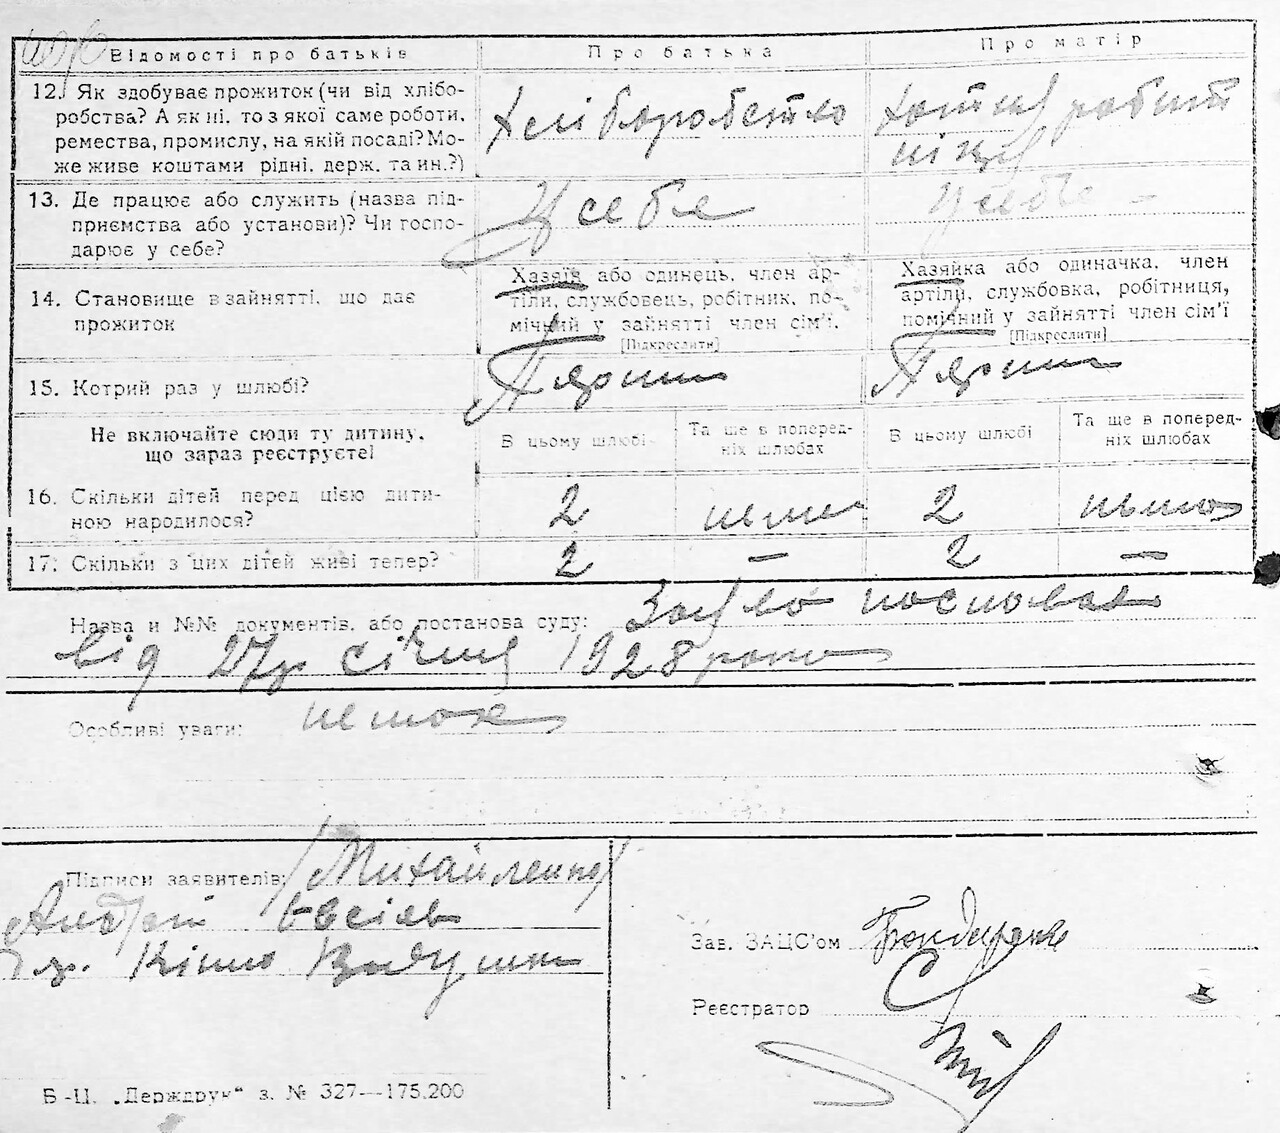 Відомості про батьків
Про батька
Про матір
12. Як здобуває прожиток (чи від хлібо-
робства? А як ні, то з якої саме роботи,
ремества, промислу, на якій посаді? Мо-
же живе коштами рідні, держ. та ин.?)
Хліборобство
хатня робіт
ниця
13. Де працює або служить (назва під-
приємства або установи)? Чи госпо-
дарює у себе?
У себе
У себе -
14. Становище в зайнятті, що дає
прожиток
Хазяїн або одинець, член ар-
тіли, службовець, робітник, по-
мічний у зайнятті член сім'ї.
[Підкреслити]
Хазяйка або одиначка, член
артіли, службовка, робітниця,
помічний у зайнятті член сім'ї
[Підкреслити]
15. Котрий раз у шлюбі?
Перший
Перший
Не включайте сюди ту дитину,
що зараз реєструєте!
В цьому шлюбі
Та ще в поперед-
ніх шлюбах
В цьому шлюбі
Та ще в поперед-
ніх шлюбах
16. Скільки дітей перед цією дити-
ною народилося?
2
нема
2
нема
17. Скільки з цих дітей живі тепер?
2
—
2
—
Назва и №№ документів, або постанова суду:
від 27го січня 1928 року
Особливі уваги:
немає
Підписи заявителів: /Михайленко/
Андрій
гр.
Зав. ЗАЦС'ом Бондаренко
Реєстратор
Б-Ц. „Держдрук“ з. № 327—175.200